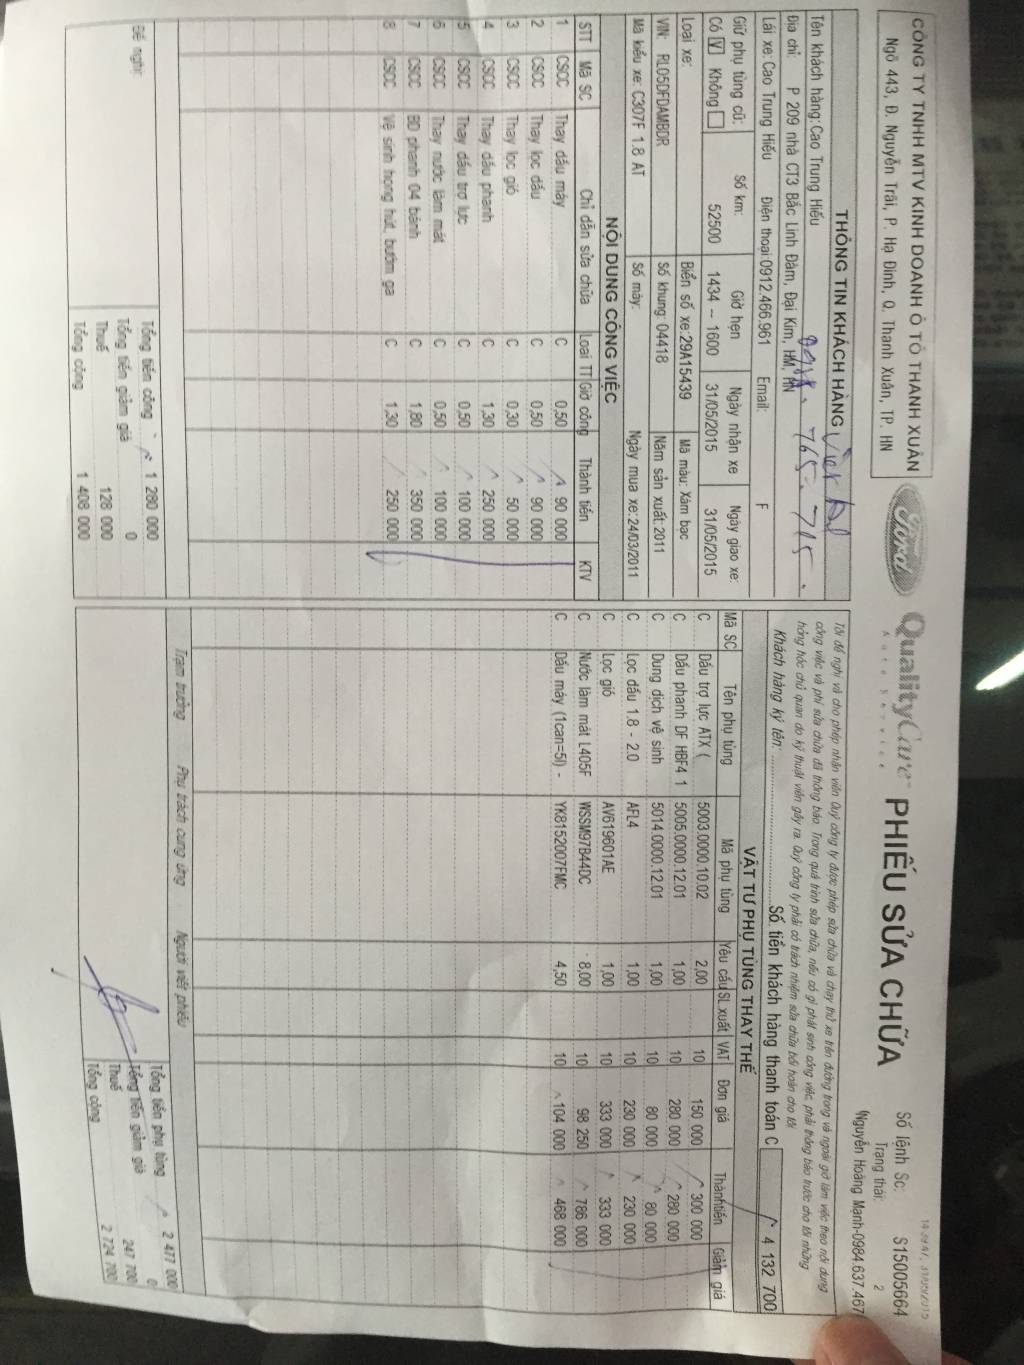 CÔNG TY TNHH MTV KINH DOANH Ô TÔ THANH XUÂN
Ngõ 443, Đ. Nguyễn Trãi, P. Hạ Đình, Q. Thanh Xuân, TP. HN
Ford
QualityCare
Auto Service
PHIẾU SỬA CHỮA
Số lệnh Sc: S15005664
Trạng thái: 2
Nguyễn Hoàng Mạnh-0984.637.467
THÔNG TIN KHÁCH HÀNG
Tên khách hàng: Cao Trung Hiếu
765.715.
Địa chỉ: P 209 nhà CT3 Bắc Linh Đàm, Đại Kim, HM, HN
Lái xe: Cao Trung Hiếu Điện thoại:0912.466.961 Email: F
Giữ phụ tùng cũ: Số km: Giờ hẹn Ngày nhận xe Ngày giao xe:
Có V Không 52500 1434 -- 1600 31/05/2015 31/05/2015
Loại xe: Biển số xe:29A15439 Mã màu: Xám bạc
VIN: RL05DFDAMBDR Số khung: 04418 Năm sản xuất:2011
Mã kiểu xe: C307F 1.8 AT Số máy: Ngày mua xe:24/03/2011
NỘI DUNG CÔNG VIỆC
STT Mã SC Chỉ dẫn sửa chữa Loại TT Giờ công Thành tiền KTV
1 CSCC Thay dầu máy C 0,50 90 000
2 CSCC Thay lọc dầu C 0,50 90 000
3 CSCC Thay lọc gió C 0,30 50 000
4 CSCC Thay dầu phanh C 1,30 250 000
5 CSCC Thay dầu trợ lực C 0,50 100 000
6 CSCC Thay nước làm mát C 0,50 100 000
7 CSCC BD phanh 04 bánh C 1,80 350 000
8 CSCC Vệ sinh họng hút, bướm ga C 1,30 250 000
Đề nghị:
Tổng tiền công 1 280 000
Tổng tiền giảm giá 0
Thuế 128 000
Tổng cộng 1 408 000
Tôi đề nghị và cho phép nhân viên Quý công ty được phép sửa chữa và chạy thử xe trên đường trong và ngoài giờ làm việc theo nội dung
công việc và phí sửa chữa đã thông báo. Trong quá trình sửa chữa, nếu có gì phát sinh công việc, phải thông báo trước cho tôi những
hỏng hóc chủ quan do kỹ thuật viên gây ra. Quý công ty phải có trách nhiệm sửa chữa bồi hoàn cho tôi
Khách hàng ký tên: Số tiền khách hàng thanh toán C 4 132 700
VẬT TƯ PHỤ TÙNG THAY THẾ
Mã SC Tên phụ tùng Mã phụ tùng Yêu cầu SL xuất VAT Đơn giá Thành tiền Giảm giá
C Dầu trợ lực ATX ( 5003.0000.10.02 2,00 10 150 000 300 000
C Dầu phanh DF HBF4 1 5005.0000.12.01 1,00 10 280 000 280 000
C Dung dịch vệ sinh 5014.0000.12.01 1,00 10 80 000 80 000
C Lọc dầu 1.8 - 2.0 AFL4 1,00 10 230 000 230 000
C Lọc gió AV619601AE 1,00 10 333 000 333 000
C Nước làm mát L405F WSSM97B44DC 8,00 10 98 250 786 000
C Dầu máy (1can=5l) - YK8152007FMC 4,50 10 104 000 468 000
Trạm trưởng Phụ trách cung ứng Người viết phiếu
Tổng tiền phụ tùng 2 477 000
Tổng tiền giảm giá 0
Thuế 247 700
Tổng cộng 2 724 700